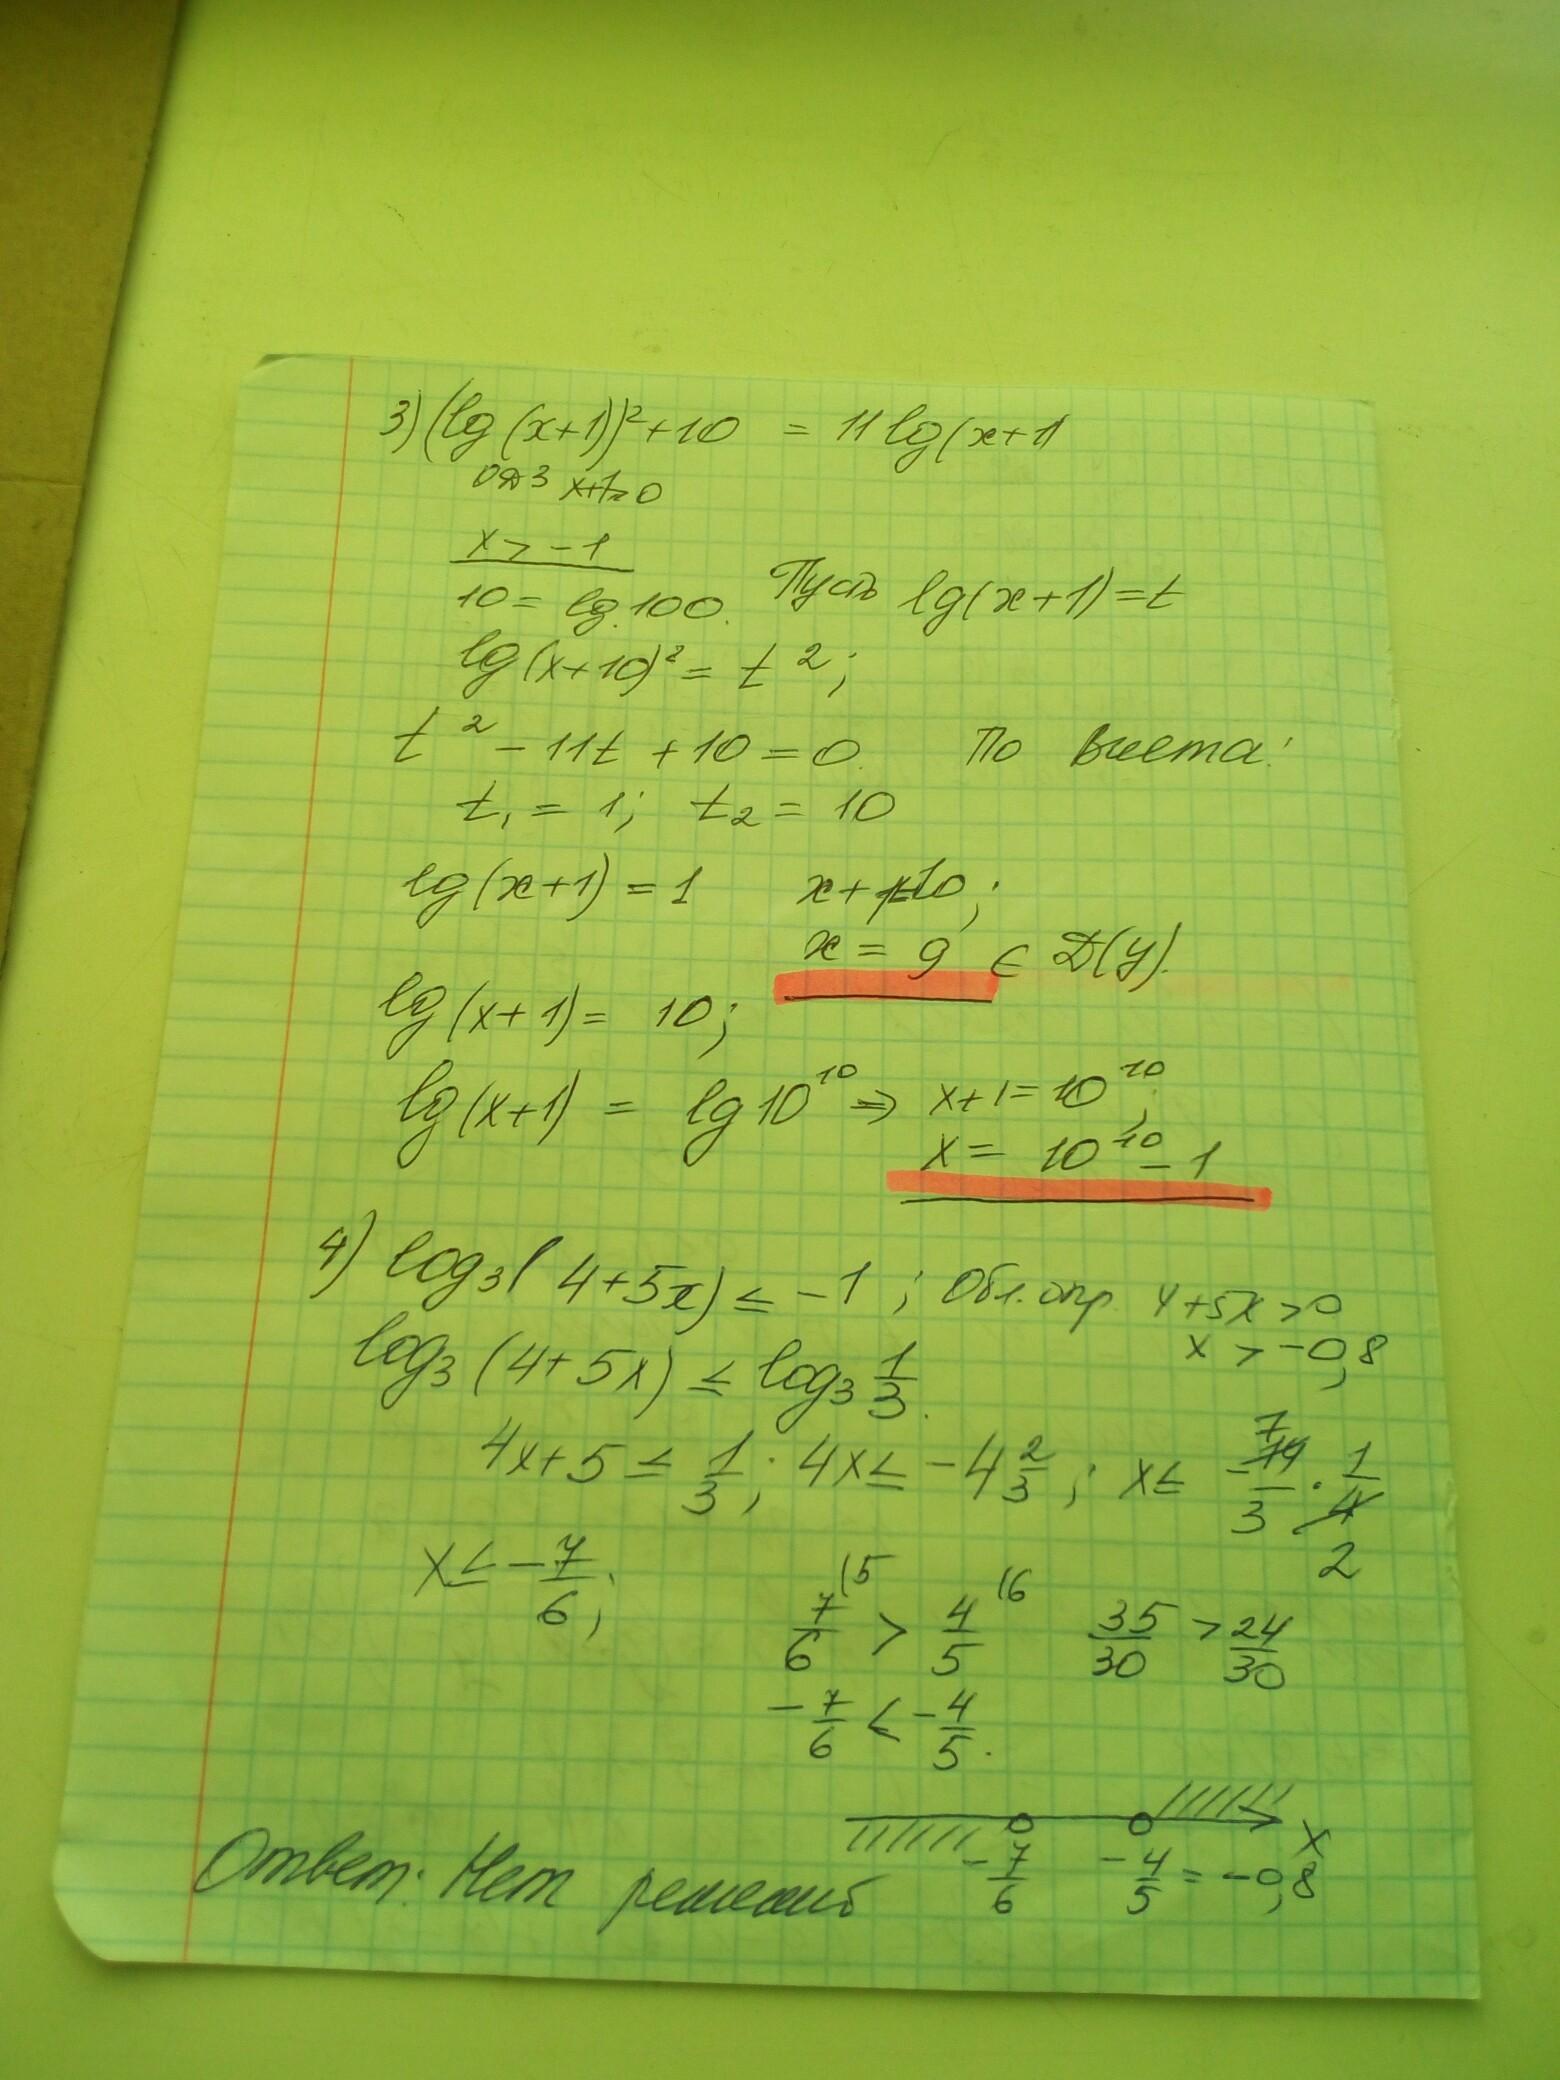 3) (lg(x+1))²+10 = 11 lg(x+1)
ОДЗ x+1>0
x > -1
10 = lg.100. Пусть lg(x+1)=t
lg(x+10)² = t²;
t² - 11t + 10 = 0. По Виета:
t₁ = 1; t₂ = 10
lg(x+1) = 1 x+1=10;
x = 9 ∈ D(y).
lg(x+1) = 10;
lg(x+1) = lg10¹⁰ => x+1=10¹⁰;
x = 10¹⁰-1
4) log₃(4+5x) ≤ -1; Обл. опр. 4+5x>0
x > -0,8
log₃(4+5x) ≤ log₃ 1/3.
4x+5 ≤ 1/3; 4x ≤ -4 2/3; x ≤ -14/3 · 1/4
7
2
x ≤ -7/6; 7/6 (5 > 4/5 (6 35/30 > 24/30
-7/6 < -4/5.
x
-7/6 -4/5 = -0,8
Ответ: Нет решений